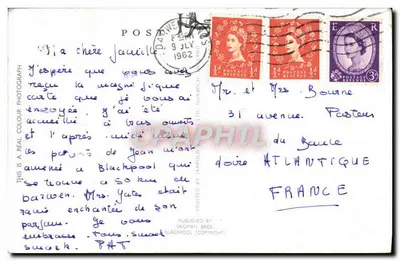 POST
Ma chère Famille
J'espère que vous avez
reçu la magnifique
carte que je vous ai
envoyée. J'ai été
accueillie à bras ouverts
et l'après-midi même
les parents de Jean m'ont
amené à Blackpool qui
se trouve à 50 km de
Darwen. Mrs. Yates était
ravie enchantée de son
parfum. Je vous
embrasse. Tous. smack
smack. PAT
THIS IS A REAL COLOUR PHOTOGRAPH
DARWEN
9 JLY
1962
E R
POSTAGE
REVENUE
½D
½D
3D
Mr. et Mrs Bourne
31 avenue Pasteur
La Baule
Loire ATLANTIQUE
FRANCE
PUBLISHED BY
BLACKPOOL (COPYRIGHT)
CPAPHIL